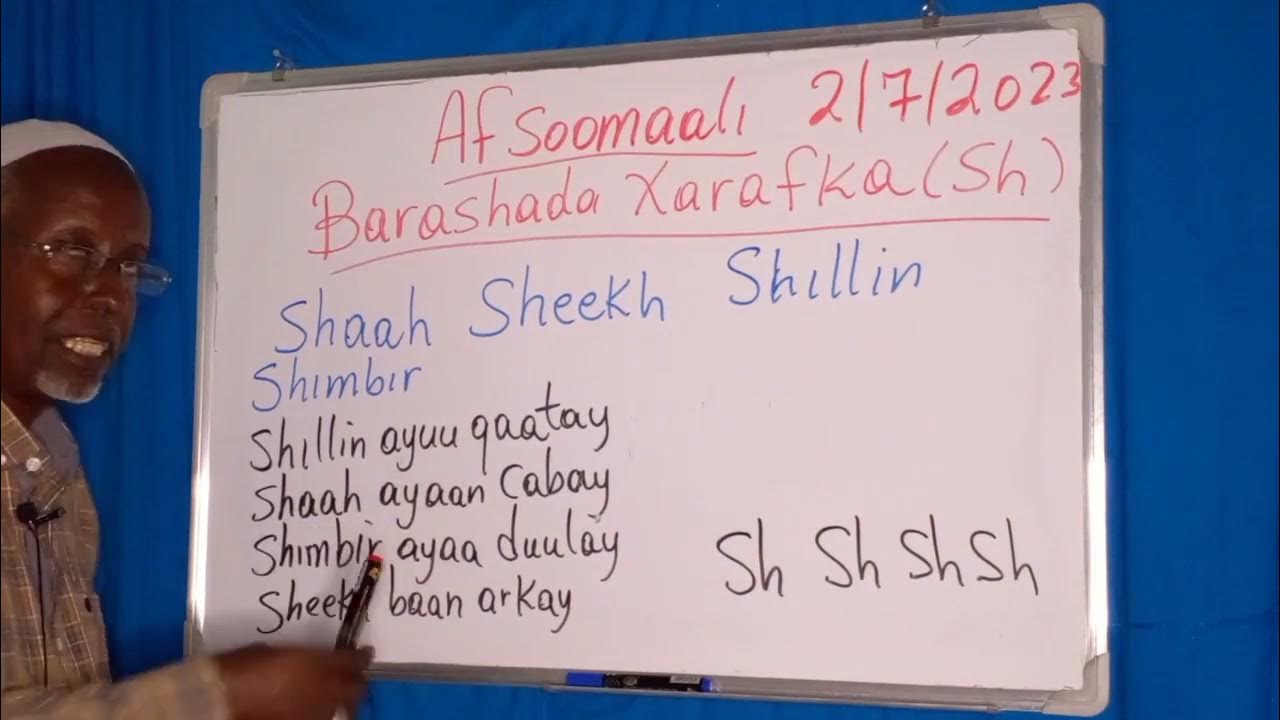 Af Soomaali 2/7/2023
Barashada Xarafka (Sh)
Shaah Sheekh Shillin
Shimbir
Shillin ayuu qaatay
Shaah ayaan Cabay
Shimbir ayaa duulay
Sheekh baan arkay
Sh Sh Sh Sh